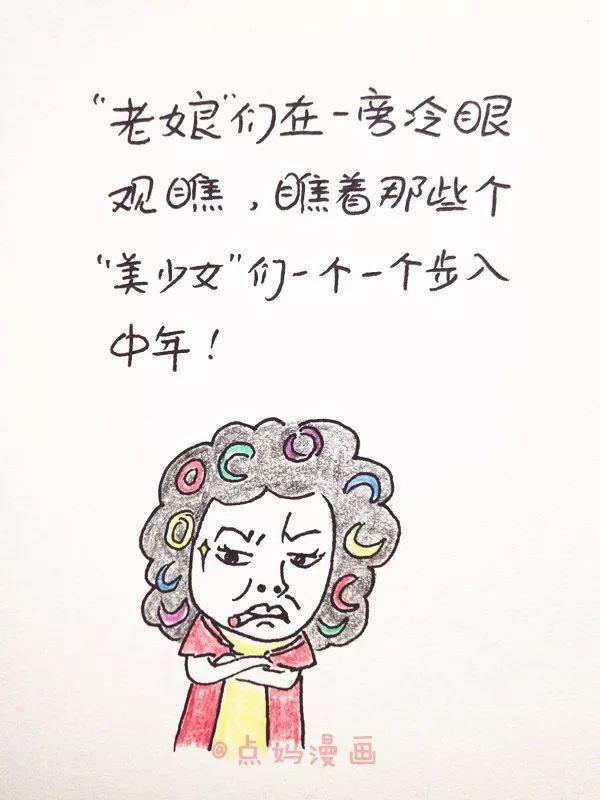 "老娘"们在一旁冷眼
观瞧，瞧着那些个
"美少女"们一个一个步入
中年！
@点妈漫画